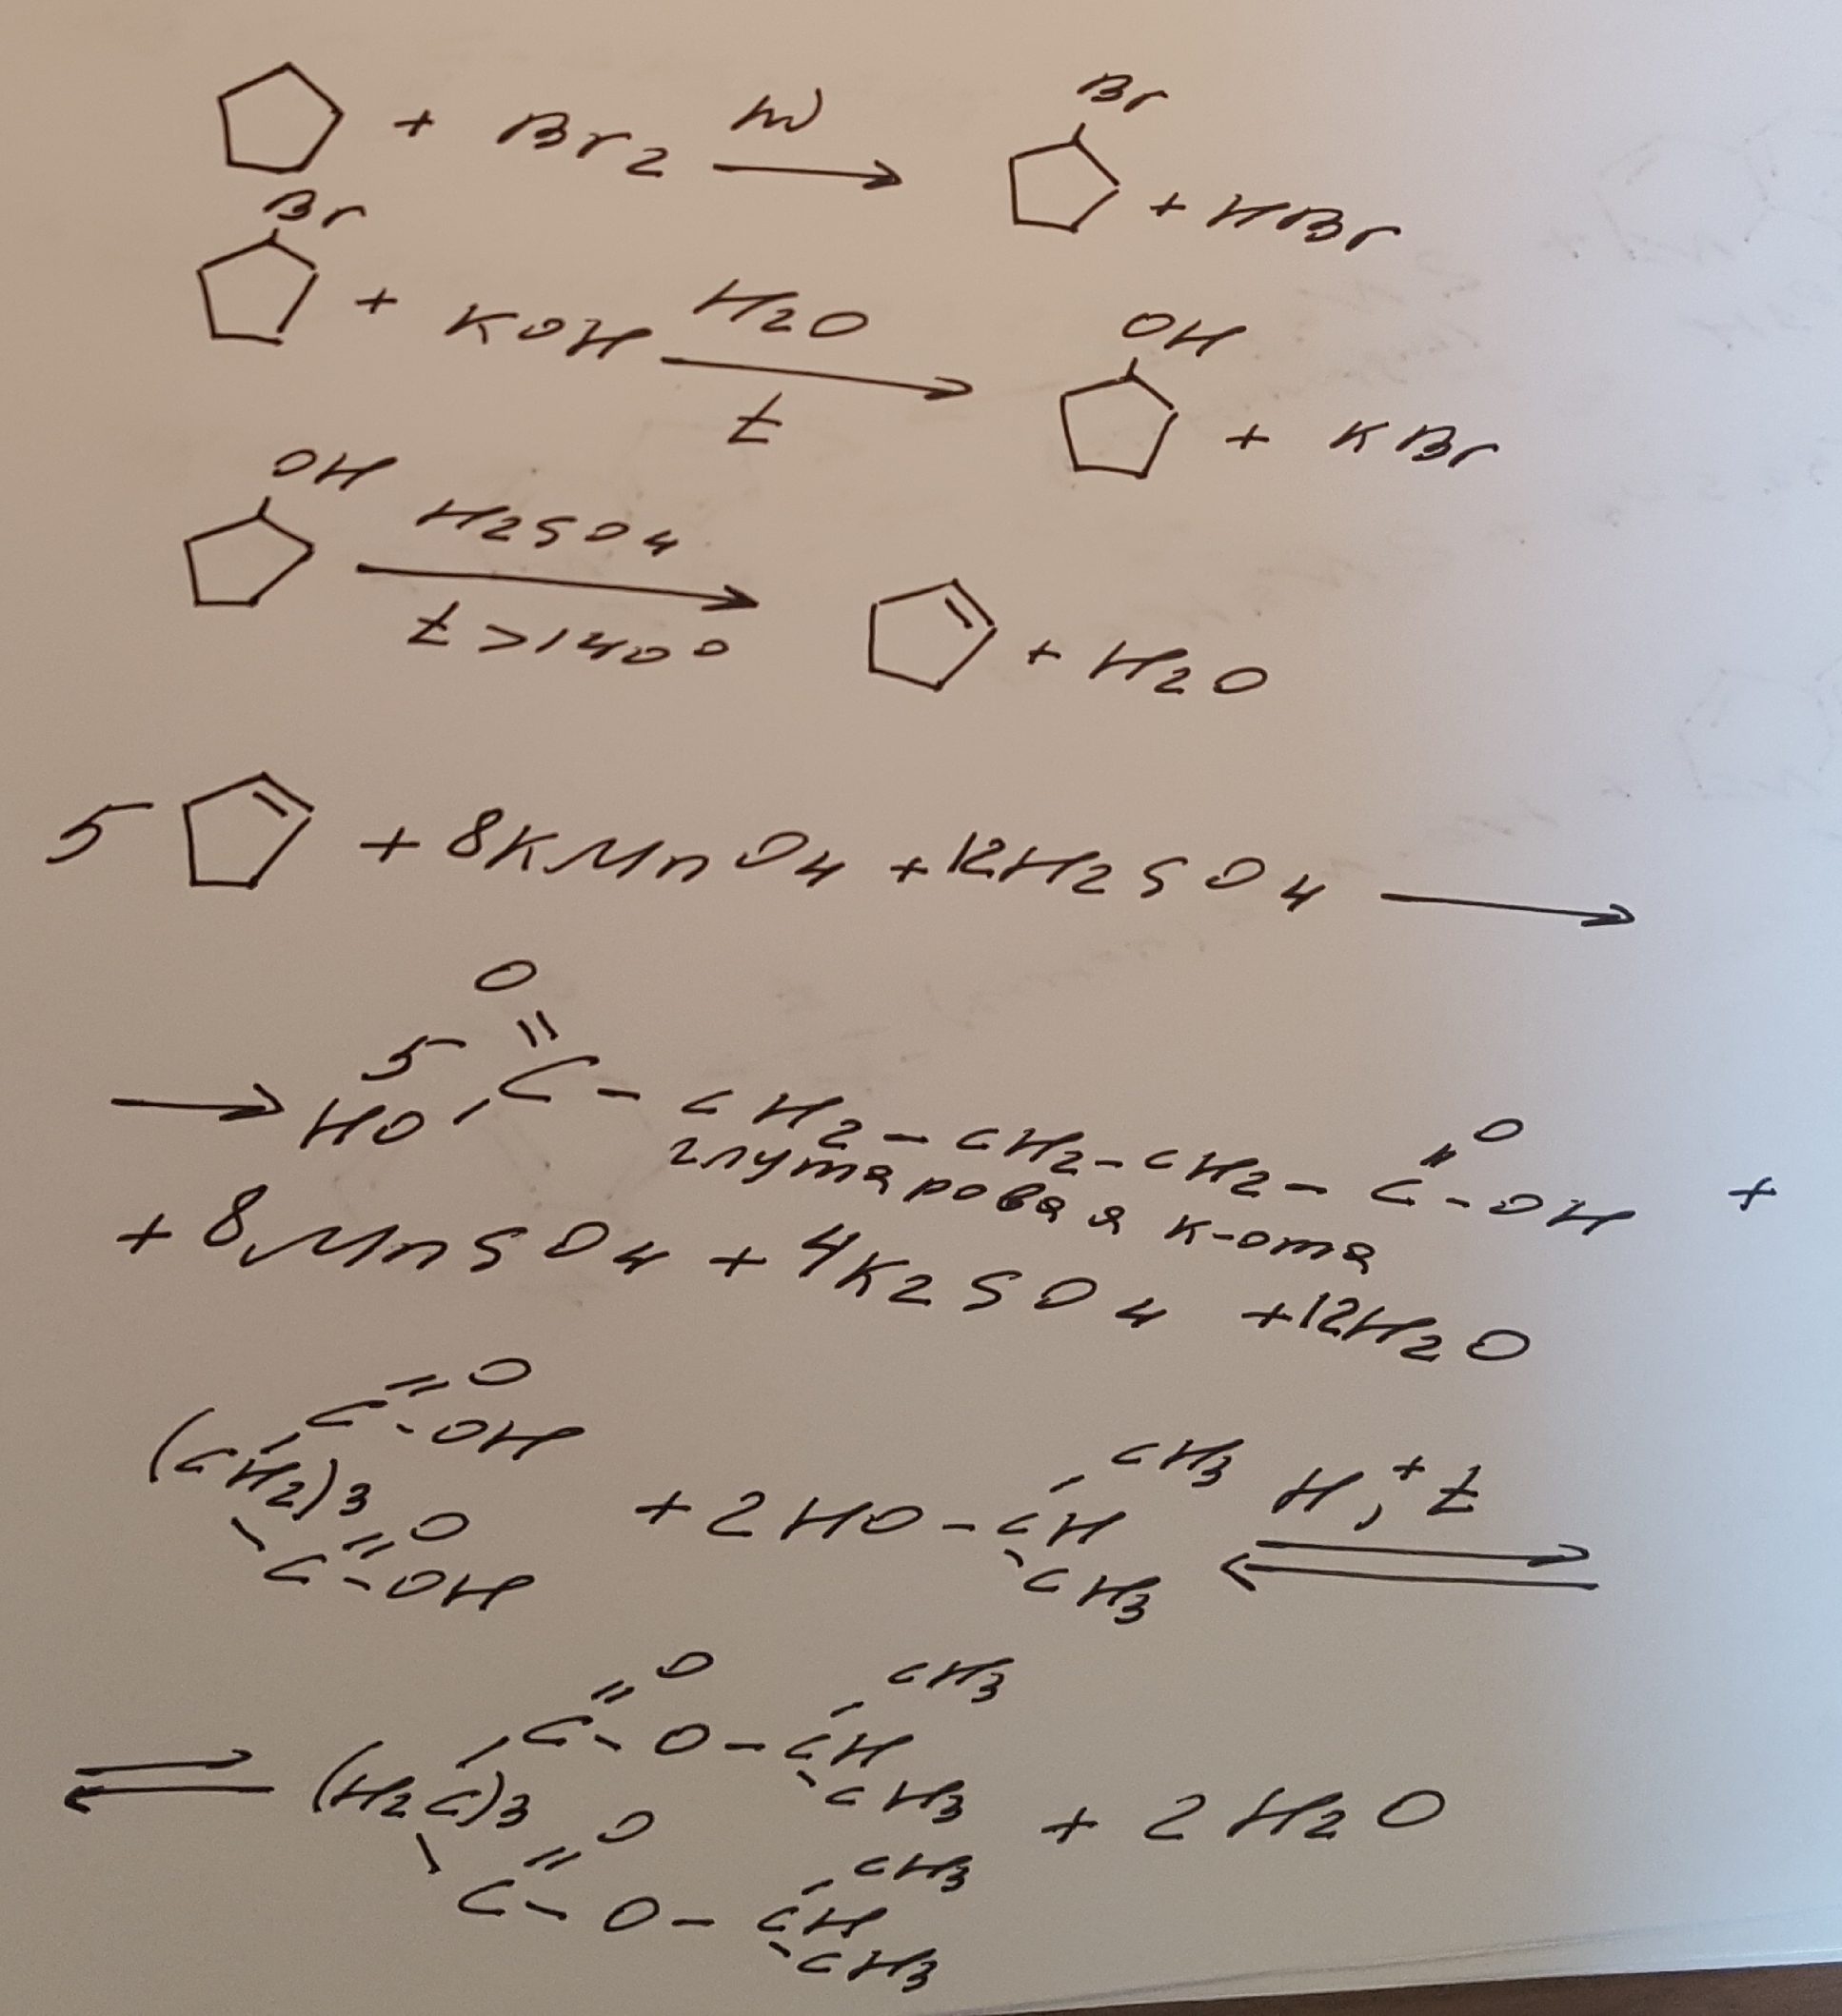 + Br2 hν Br + HBr
Br + KOH H2O t OH + KBr
OH H2SO4 t > 140° + H2O
5 + 8KMnO4 + 12H2SO4 →
→ 5 HO-C(=O)-CH2-CH2-CH2-C(=O)-OH +
глутаровая к-ота
+ 8MnSO4 + 4K2SO4 + 12H2O
(CH2)3 C=O -OH C=O -OH + 2HO-CH CH3 CH3 H+, t ⇌
⇌ (H2C)3 C=O -O-CH CH3 CH3 C=O -O-CH CH3 CH3 + 2H2O